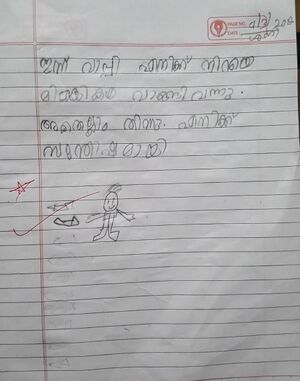 PAGE NO.
DATE
ഇന്ന് വാപ്പി എനിക്ക് നിറയെ
മിഠായികൾ വാങ്ങി വന്നു.
തിന്നു. എനിക്ക്
സന്തോഷമായി